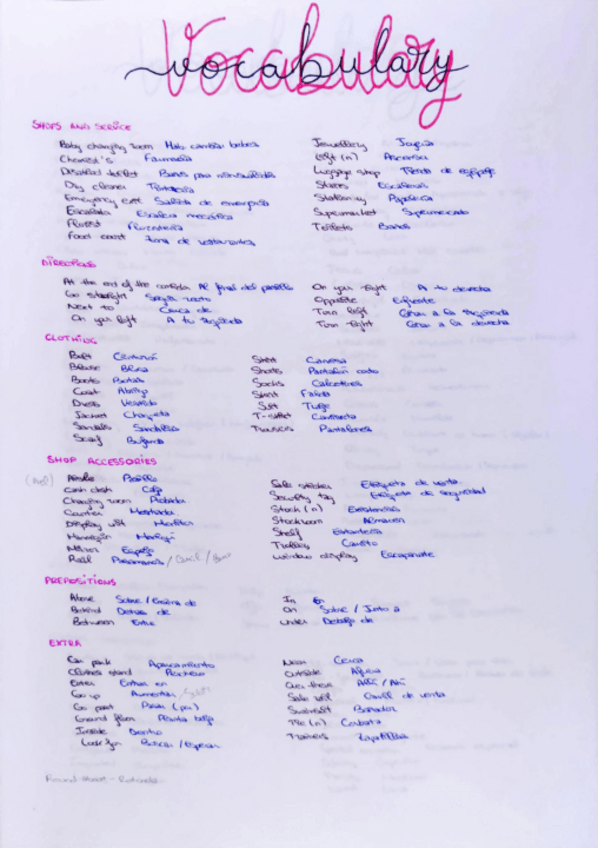 Vocabulary
SHOPS AND SERVICE
Baby changing room Mais cambiar bebes
Chemist's Farmacia
Disabled toilet Banos para minusválidos
Dry cleaner Tintorería
Emergency exit Salida de emergencia
Escalator Escalera mecánica
Florist Floristería
Food court Zona de restaurantes
Jewellery Joyería
Lift (n) Ascensor
Luggage shop Tienda de equipaje
Stairs Escaleras
Stationary Papelería
Supermarket Supermercado
Toilets Banos
DIRECTIONS
At the end of the corridor Al final del pasillo
Go straight Seguir recto
Next to Cerca de
On your left A tu izquierda
On your right A tu derecha
Opposite Enfrente
Turn left Girar a la izquierda
Turn right Girar a la derecha
CLOTHING
Belt Cinturón
Blouse Blusa
Boots Botas
Coat Abrigo
Dress Vestido
Jacket Chaqueta
Sandals Sandalias
Scarf Bufanda
Shirt Camisa
Shorts Pantalón corto
Socks Calcetines
Skirt Falda
Suit Traje
T-shirt Camiseta
Trousers Pantalones
SHOP ACCESSORIES
Aisle Pasillo
Cash desk Caja
Changing room Probador
Counter Mostrador
Display unit
Mannequin Maniquí
Mirror Espejo
Rail
Sale sticker Etiqueta de venta
Security tag Etiqueta de seguridad
Stock (n) Existencias
Stockroom Almacén
Shelf Estantería
Trolley Carrito
Window display Escaparate
PREPOSITIONS
Above Sobre / Encima de
Behind Detrás de
Between Entre
In En
On Sobre / Junto a
Under Debajo de
EXTRA
Car park Aparcamiento
Clothes stand Perchero
Enter Entrar en
Go up Aumentar
Go past Pasar (por)
Ground floor Planta baja
Inside Dentro
Look for Buscar / Esperar
Near Cerca
Outside Afuera
Over there Allí / Ahí
Sale rail Carril de venta
Swimsuit Bañador
Tie (n) Corbata
Trainers Zapatillas
Round about - Rotonda